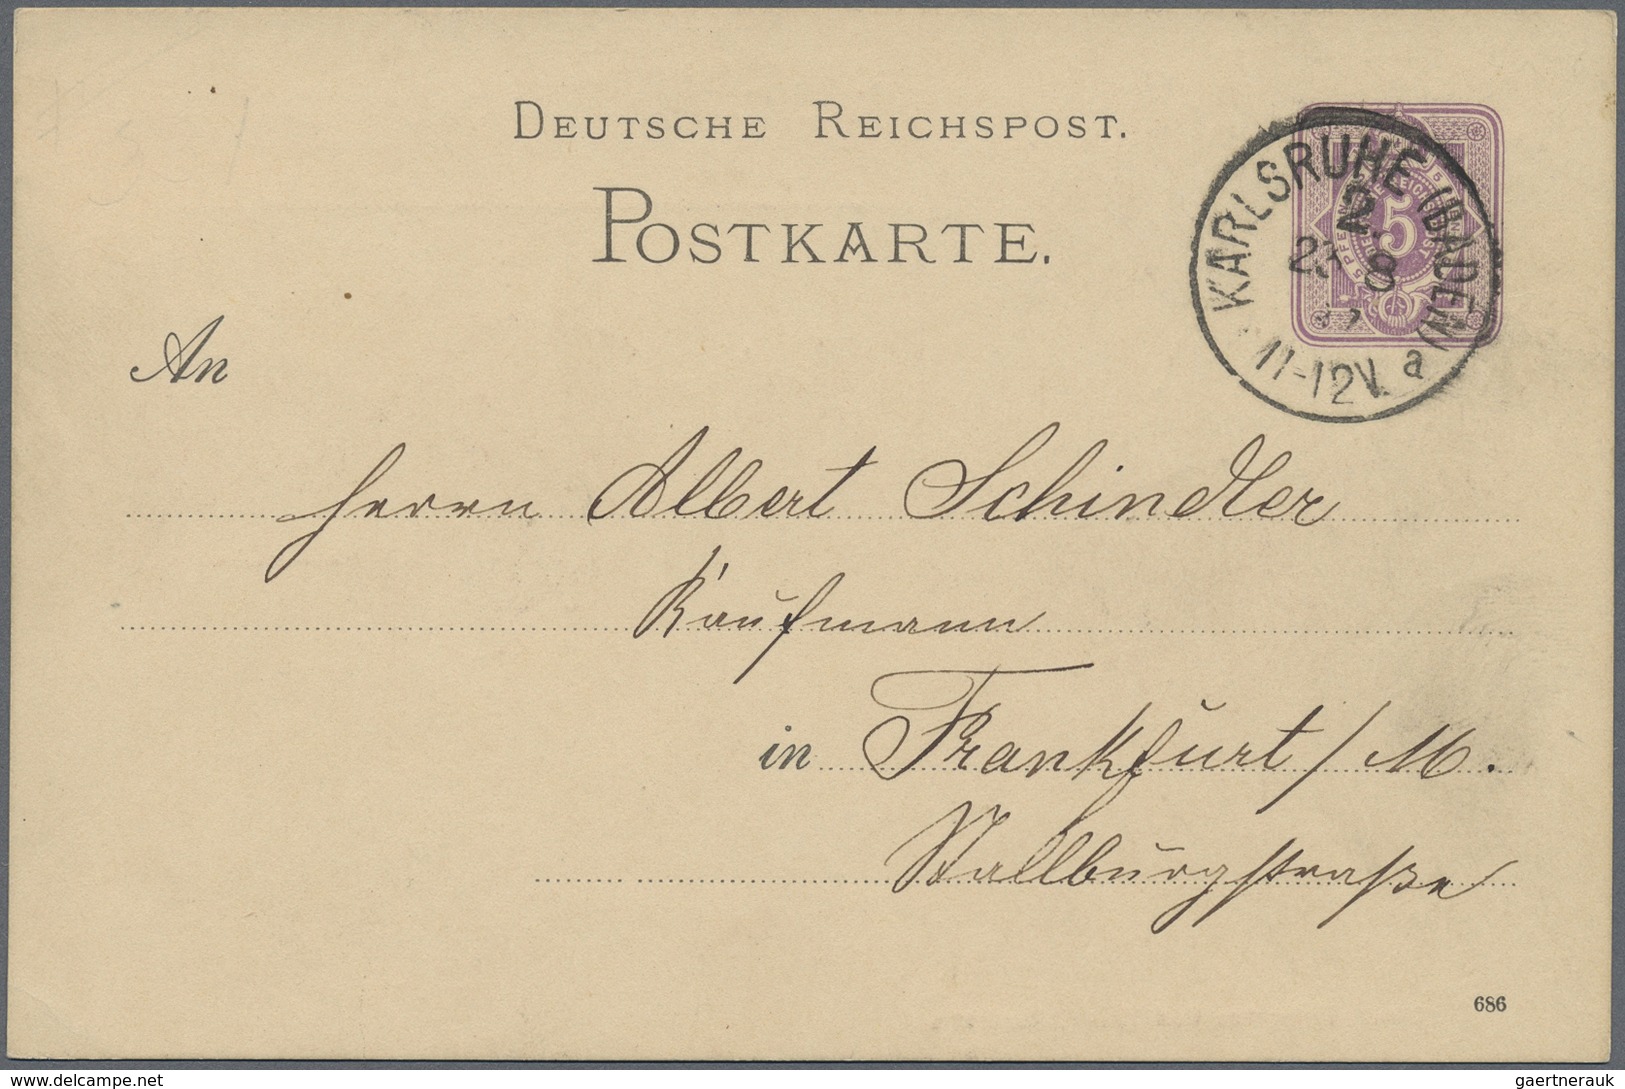 DEUTSCHE REICHSPOST.
POSTKARTE.
KARLSRUHE (BADEN)
2.
23 8
11-12V. a
5
An
Herrn Albert Schindler
Kaufmann
in Frankfurt / M.
Stallburgstraße
686
www.delcampe.net
gaertnerauk